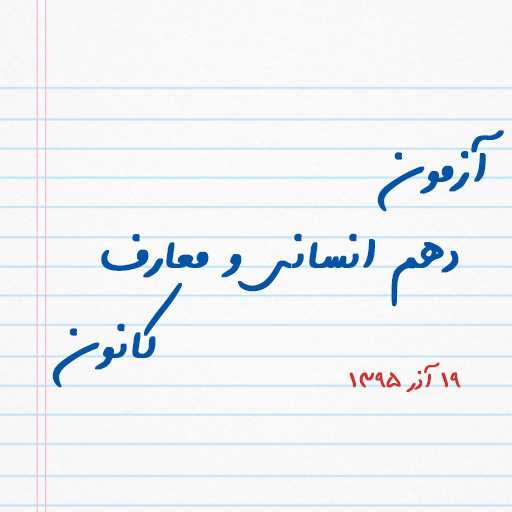 آزمون
دهم انسانی و معارف
کانون
۱۹ آذر ۱۳۹۵